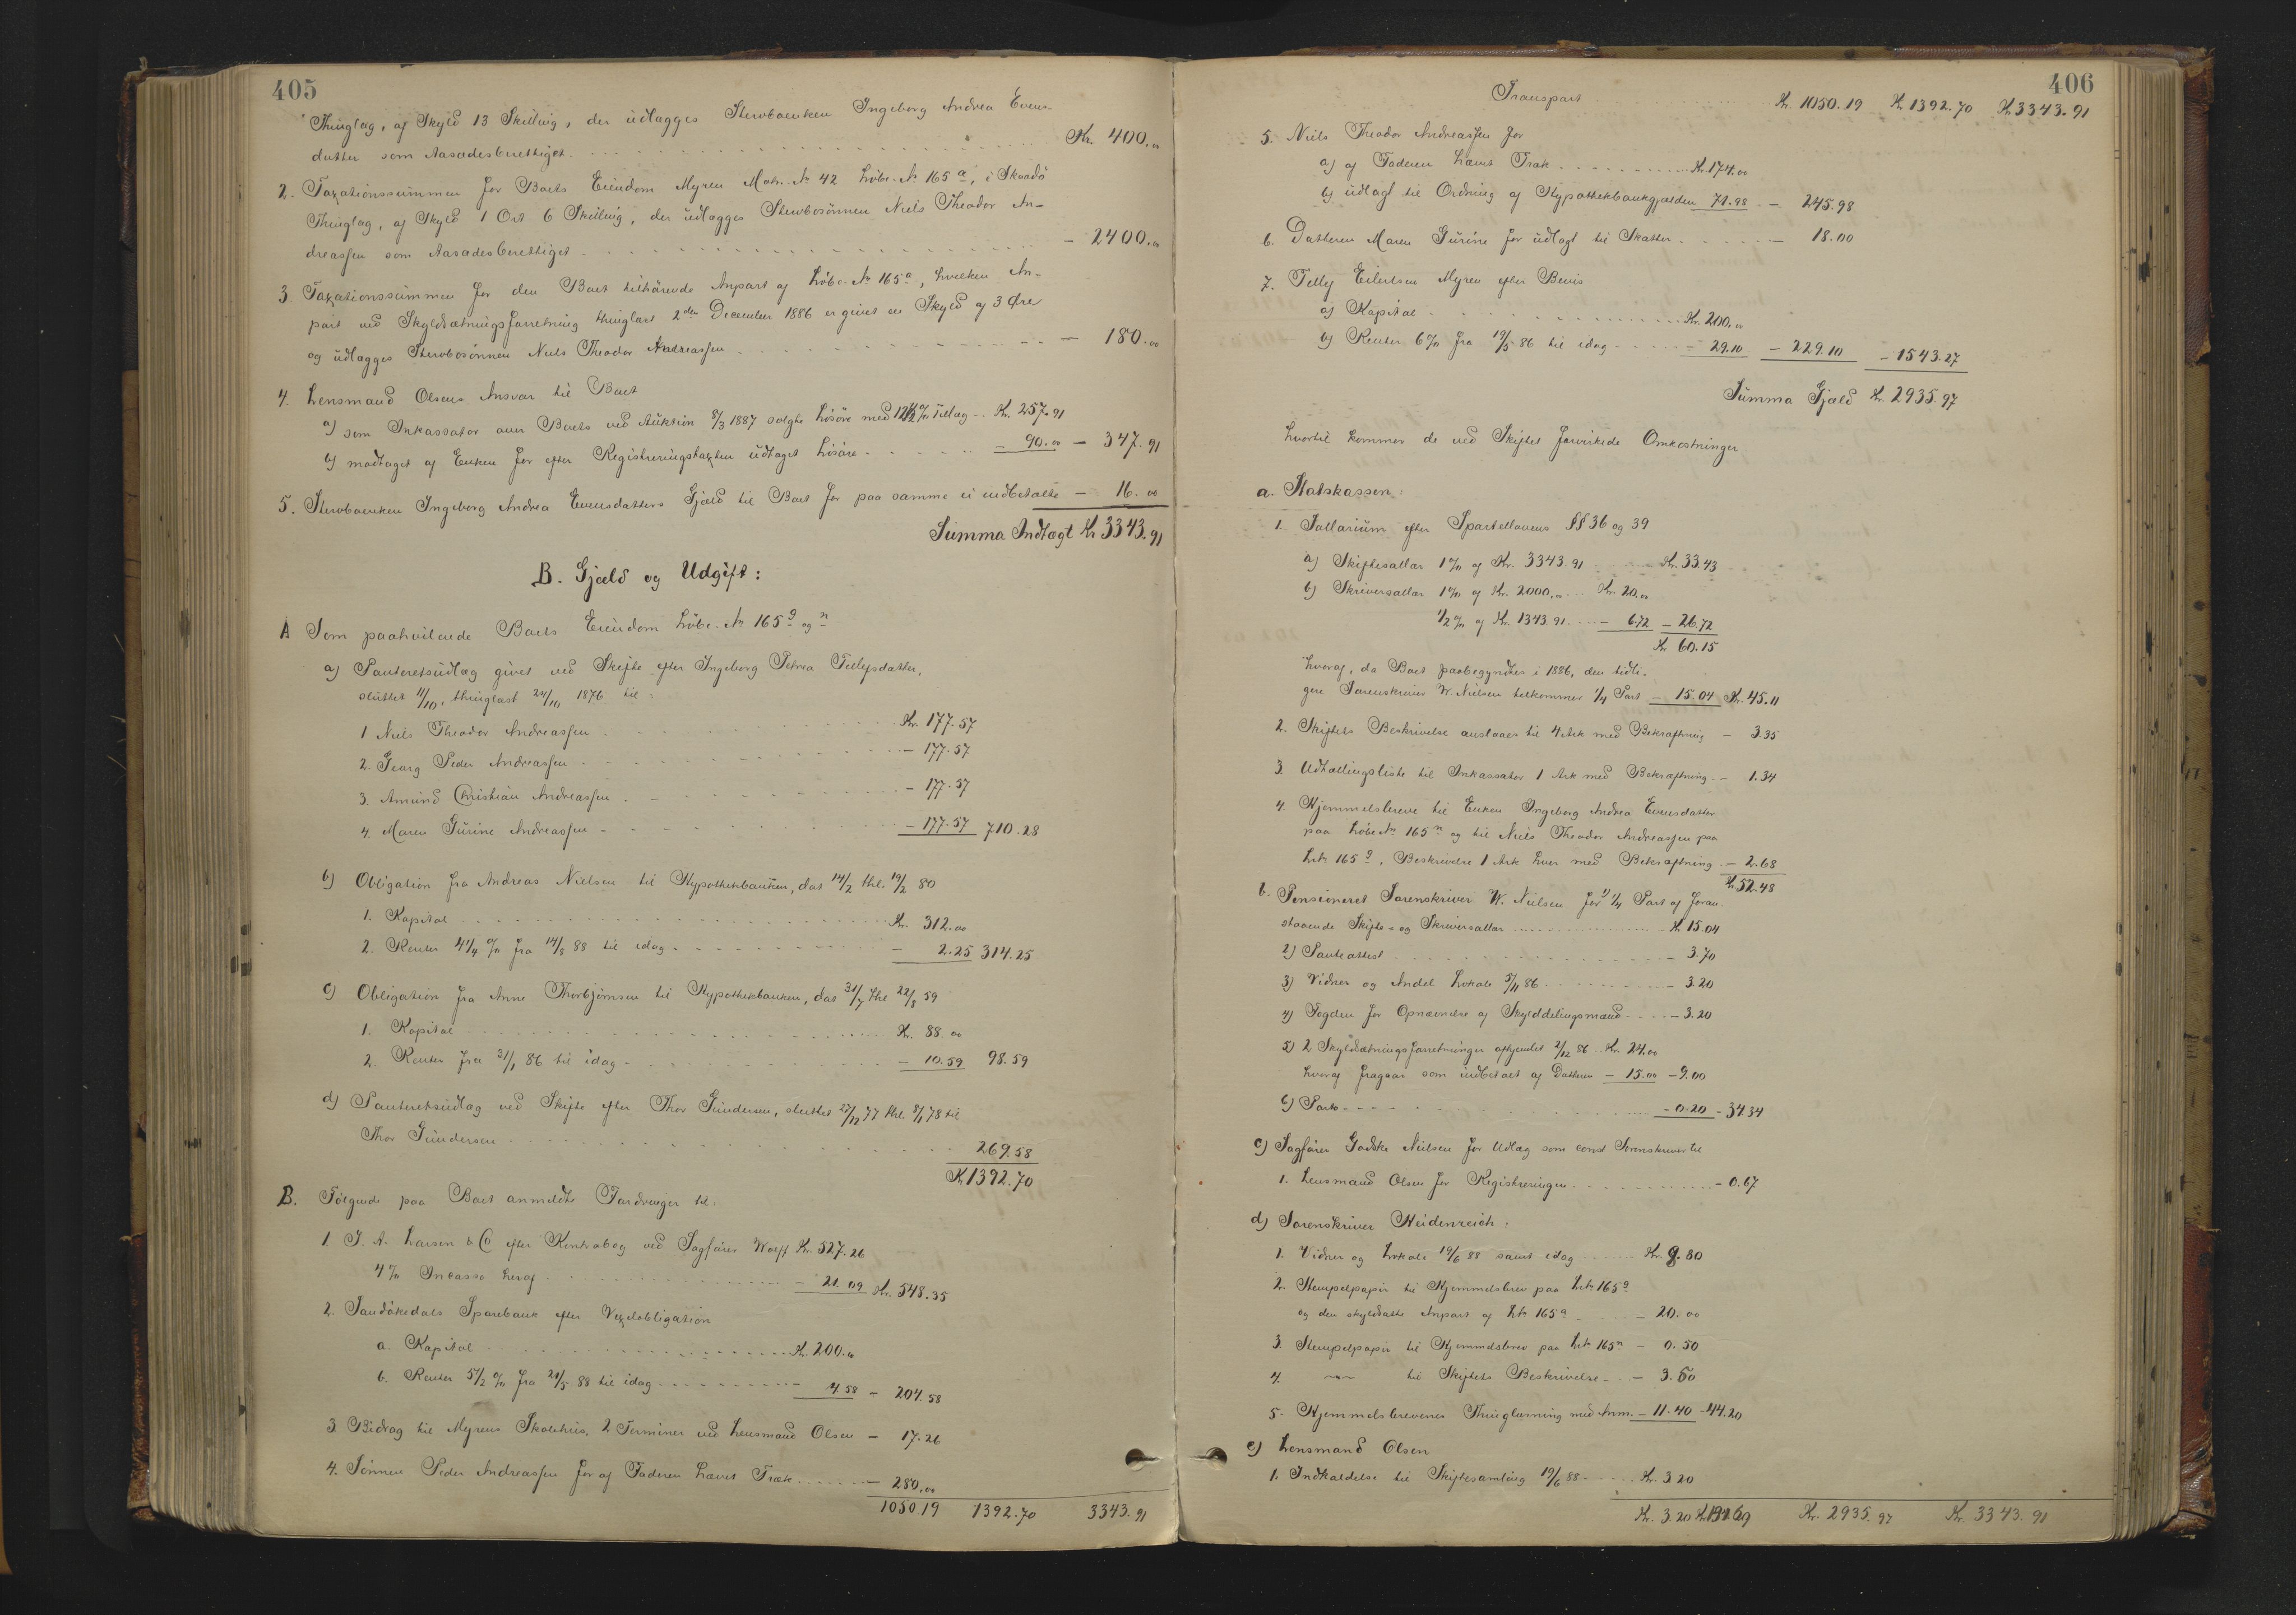 405
Thinglag, af Skyld 13 Skilling, der udlægges Stervboenken Ingeborg Andrea Evens-
datter som Aasædesberettiget Kr. 400.00
2. Taxationssummen for Boets Eiendom Myren Matr. № 42 Löbe-№ 165 a, i Skaadö
Thinglag, af Skyld 1 Ort 6 Skilling, der udlægges Stervbosönnen Niels Theodor An-
dreassen som Aasædesberettiget - 2400.00
3. Taxationssummen for den Boet tilhörende Anpart af Löbe-№ 165 a, hvilken An-
part ved Skyldsætningsforretning thinglæst 2den December 1886 er givet en Skyld af 3 Øre
og udlægges Stervbosönnen Niels Theodor Andreassen - 180.00
4. Lensmand Olsens Ansvar til Boet
a) som Inkassator over Boets ved Auktion 8/3 1887 solgte Lösöre med 12½ % Tillæg Kr. 257.91
b) modtaget af Enken for efter Registreringstaxten udtaget Lösöre - 90.00 - 347.91
5. Stervboenken Ingeborg Andrea Evensdatters Gjæld til Boet for paa samme ei indbetalte - 16.00
Summa Indtægt Kr 3343.91
B. Gjæld og Udgift:
A Som paahvilende Boets Eiendom Löbe-№ 165 g og n
a) Panteretsudlæg givet ved Skifte efter Ingeborg Petrea Tellefsdatter,
sluttet 11/10, thinglæst 24/10 1876 til:
1 Niels Theodor Andreassen Kr. 177.57
2. Georg Peder Andreassen - 177.57
3. Amund Christian Andreassen - 177.57
4. Maren Gurine Andreassen - 177.57 710.28
b) Obligation fra Andreas Nielsen til Hypothekbanken, dat 14/2 thl. 19/2 80
1. Kapital Kr. 312.00
2. Renter 4¼ % fra 14/8 88 til idag - 2.25 314.25
c) Obligation fra Anne Thorbjörnsen til Hypothekbanken, dat 31/7 thl 22/8 59
1. Kapital Kr. 88.00
2. Renter fra 31/1 86 til idag - 10.59 98.59
d) Panteretsudlæg ved Skifte efter Thor Gundersen, sluttet 27/12 77 thl. 8/1 78 til
Thor Gundersen 269.58
Kr 1392.70
B. Fölgende paa Boet anmeldte Fordringer til:
1. J. A. Larsen & Co efter Kontrabog ved Sagförer Worff Kr. 527.26
4 % Incasso heraf - 21.09 Kr. 548.35
2. Sandökedals Sparebank efter Vexelobligation
a. Kapital Kr. 200.00
b. Renter 5½ % fra 21/5 88 til idag - 4.58 - 204.58
3. Bidrag til Myrens Skolehus, 2 Terminer ved Lensmand Olsen - 17.26
4. Sönnen Peder Andreassen for af Faderen hævet Træk - 280.00
1050.19 1392.70 3343.91
406
Transport Kr. 1050.19 Kr. 1392.70 Kr. 3343.91
5. Niels Theodor Andreassen for
a) af Faderen hævet Træk Kr. 174.00
b) udlagt til Ordning af Hypothekbankgjælden 71.98 - 245.98
6. Datteren Maren Gurine for udlagt til Skatter - 18.00
7. Tellef Eilertsen Myren efter Bevis
a) Kapital Kr. 200.00
b) Renter 6 % fra 19/5 86 til idag - 29.10 - 229.10 - 1543.27
Summa Gjæld Kr. 2935.97
hvortil kommer de ved Skiftet forvirkede Omkostninger
a. Statskassen:
1. Sallarium efter Sportellovens §§ 36 og 39
a) Skiftesallar 1 % af Kr. 3343.91 Kr. 33.43
b) Skriversallar 1 % af Kr. 2000.00 Kr. 20.00
½ % af Kr. 1343.91 - 6.72 - 26.72
Kr 60.15
hvoraf, da Boet paabegyndtes i 1886, den tidli-
gere Sorenskriver W. Nielsen tilkommer ¼ Part - 15.04 Kr. 45.11
2. Skiftets Beskrivelse anslaaes til 4 Ark med Bekræftning - 3.35
3. Udtællingsliste til Inkassator 1 Ark med Bekræftning - 1.34
4. Hjemmelsbreve til Enken Ingeborg Andrea Evensdatter
paa Löbe № 165 n og til Niels Theodor Andreassen paa
L№ 165 g, Beskrivelse 1 Ark hver med Bekræftning - 2.68
Kr. 52.48
b. Pensioneret Sorenskriver W. Nielsen for 1) ¼ Part af foran-
staaende Skifte- og Skriversallar Kr. 15.04
2) Panteattest - 3.70
3) Vidner og Andel Lokale 5/11 86 - 3.20
4) Fogden for Opnævnelse af Skylddelingsmænd - 3.20
5) 2 Skyldsætningsforretninger afhjemlet 2/12 86 Kr. 24.00
hvoraf fragaar som indbetalt af Datteren - 15.00 - 9.00
6) Porto - 0.20 - 34.34
c) Sagförer Godske Nielsen for Udlæg som const Sorenskriver til
1. Lensmand Olsen for Registreringen - 0.67
d) Sorenskriver Heidenreich:
1. Vidner og Lokale 19/6 88 samt idag Kr. 8.80
2. Stempelpapir til Hjemmelsbrev paa L№ 165 g
og den skyldsatte Anpart af L№ 165 a - 20.00
3. Stempelpapir til Hjemmelsbrev paa L№ 165 n - 0.50
4. -"- til Skiftets Beskrivelse - 3.50
5. Hjemmelsbrevenes Thinglæsning med Anm. - 11.40 - 44.20
e) Lensmand Olsen
1. Indkaldelse til Skiftesamling 19/6 88 Kr. 3.20
Kr. 3.20 Kr. 131.69 Kr. 2935.97 Kr. 3343.91